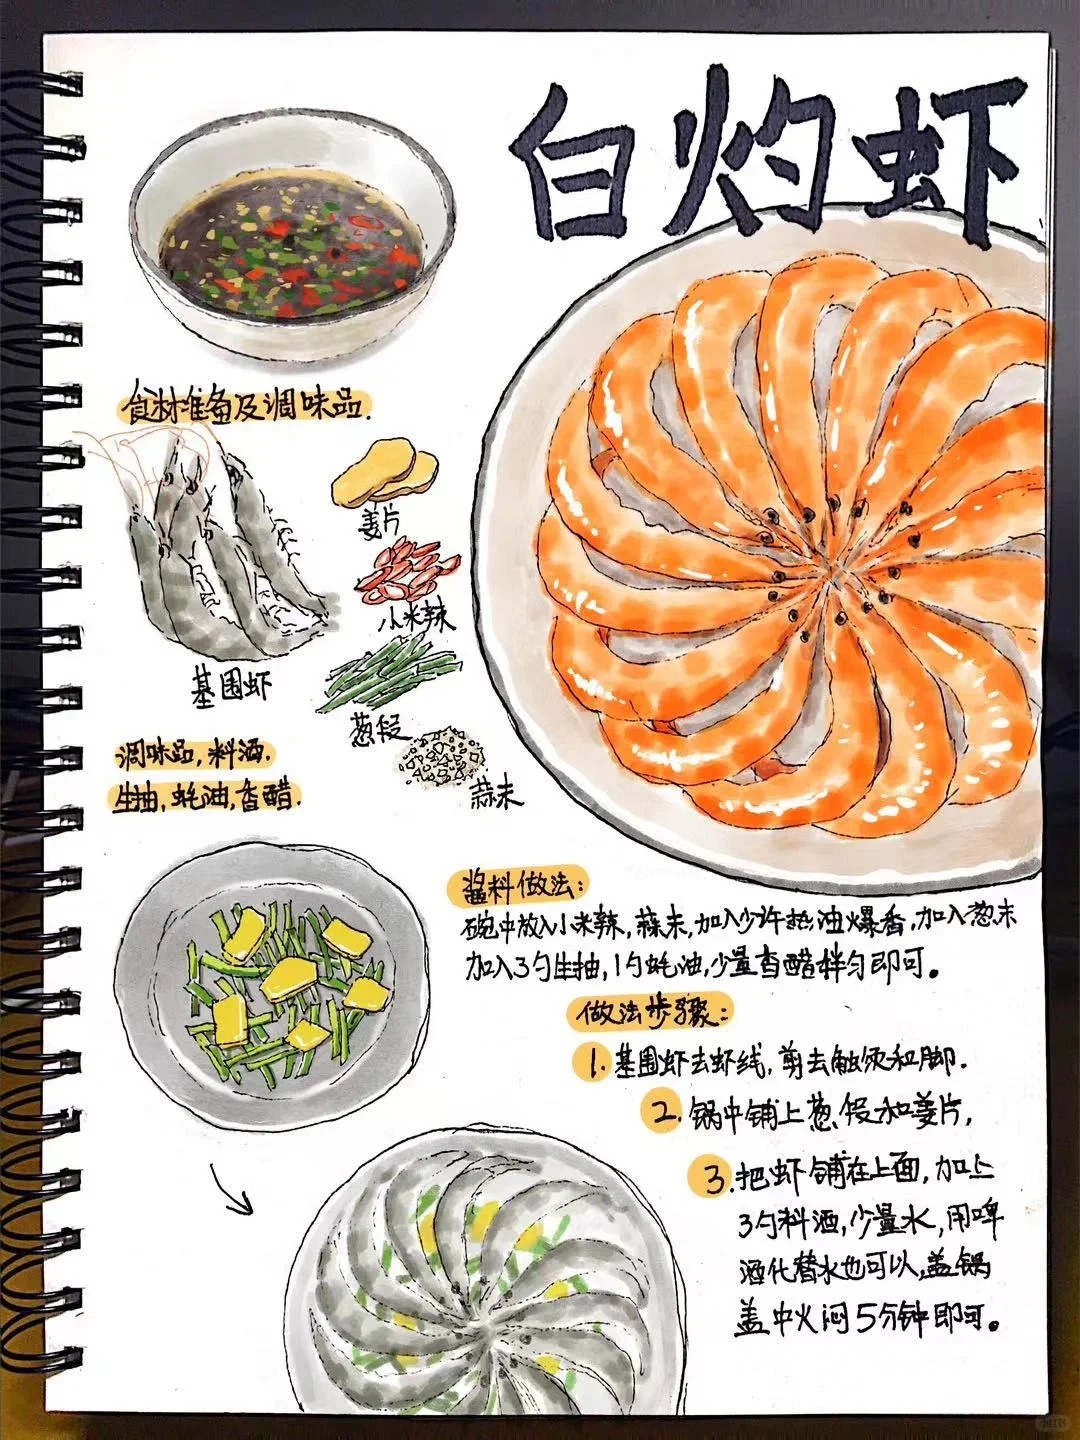 白灼虾
食材准备及调味品.
姜片
小米辣
基围虾
葱段
蒜末
调味品,料酒.
生抽,蚝油,香醋.
酱料做法:
碗中放入小米辣,蒜末,加入少许热油爆香,加入葱末
加入3勺生抽,1勺蚝油,少量香醋拌匀即可。
做法步骤:
1.基围虾去虾线,剪去触须和脚.
2.锅中铺上葱段和姜片,
3.把虾铺在上面,加上
3勺料酒,少量水,用啤
酒代替水也可以,盖锅
盖中火闷5分钟即可。
小红书